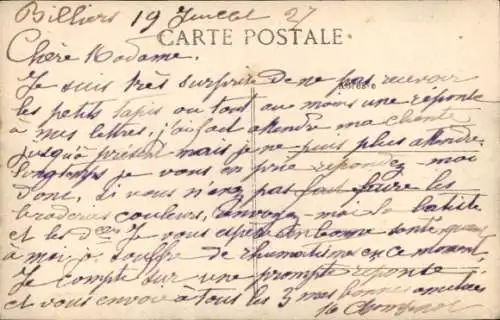 Billiers 19 Juillet 27
CARTE POSTALE
Chère Madame.
Je suis très surprise de ne pas recevoir
les petits tapis ou tout au moins une réponse
à mes lettres, j'ai fait attendre ma cliente
jusqu'à présent mais je ne puis plus attendre
longtemps je vous en prie répondez moi
donc, si vous n'avez pas fait faire les
broderies couleurs, envoyez moi la batiste
et les Je vous espère en bonne santé quant
à moi je souffre de rhumatismes en ce moment,
Je compte sur une prompte réponse
et vous envoie à tous les 3 mes bonnes amitiés